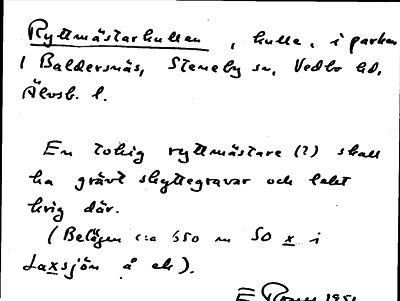 Ryttmästarkullen, kulle, i parken
i Baldersnäs, Steneby sn, Vedbo hd,
Älvsb. l.
En tokig ryttmästare (?) skall
ha grävt skyttegravar och lekt
krig där.
(Belägen c:a 550 m SO x i
Laxsjön å ek).
E 1951